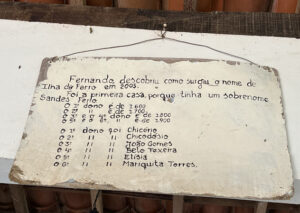 Fernando descobriu como surgiu o nome de
Ilha do Ferro em 2003.
Foi a primeira casa, porque tinha um sobrenome
Sandes Ferro
O 1º dono é de 1600
O 2º " é de 1700
O 3º e o 4º dono é de 1800
O 5º e 6º " é de 1900
O 1º dono foi Chicório
O 2º " " Chicodósio
O 3º " " João Gomes
O 4º " " Belo Texeira
O 5º " " Elisia
O 6º " " Mariquita Torres.